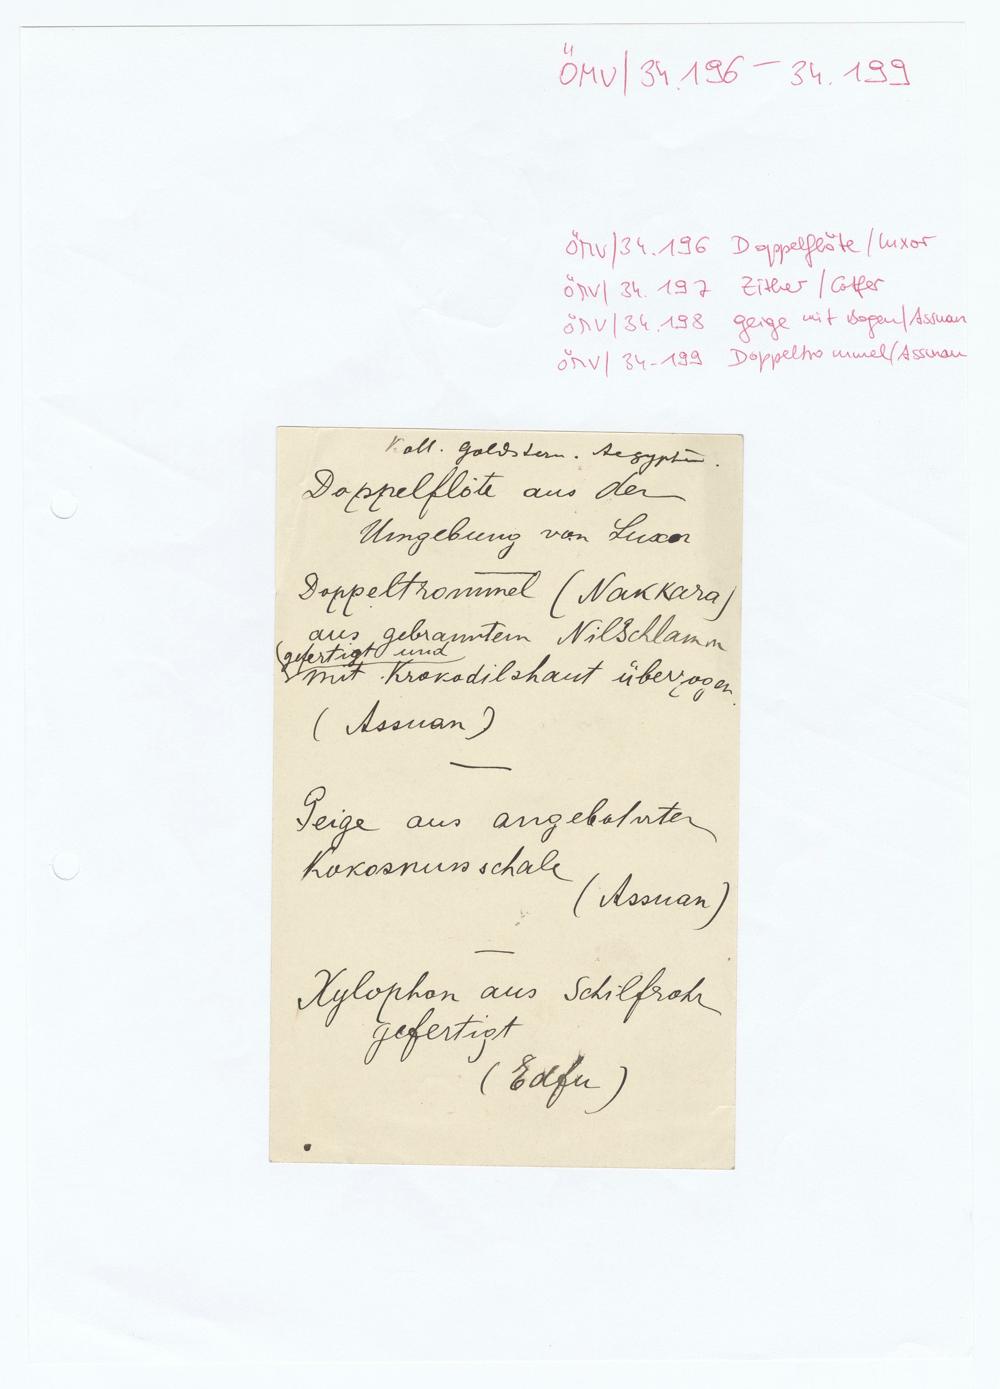 ÖMV/34.196 – 34.199
ÖMV/34.196 Doppelflöte/Luxor
ÖMV/34.197 Zither/
ÖMV/34.198 geige mit Bogen/Assuan
ÖMV/34-199 Doppeltrommel/Assuan
Koll. Goldstern. Aegypten.
Doppelflöte aus der
Umgebung von Luxor
Doppeltrommel (Nakkara)
aus gebranntem Nilschlamm
(gefertigt und
mit Krokodilshaut überzogen.
(Assuan)
—
Geige aus angebohrter
Kokosnussschale
(Assuan)
—
Xylophon aus Schilfrohr
gefertigt
(Edfu)